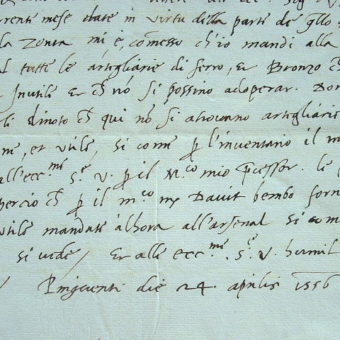 rrente mese date in virtu della parte de qllo
la Zonta mi è, comesso ch'io mandi alla
tutte le artigliarie di ferro, et Bronzo
Inutile et no si possino adoperar. Don
qui no si atrovano artigliarie
me, et utile, si come p l'inventario il m
all'ecc.me S.e V. p il M.co mio pcessor. le
p il m.co mr Davit bembo forn
utile mandate alhora all'arsenal si com
si vide / Et alle ecc.me S.e V. humil
Pinguenti die 24 aprilis 1556